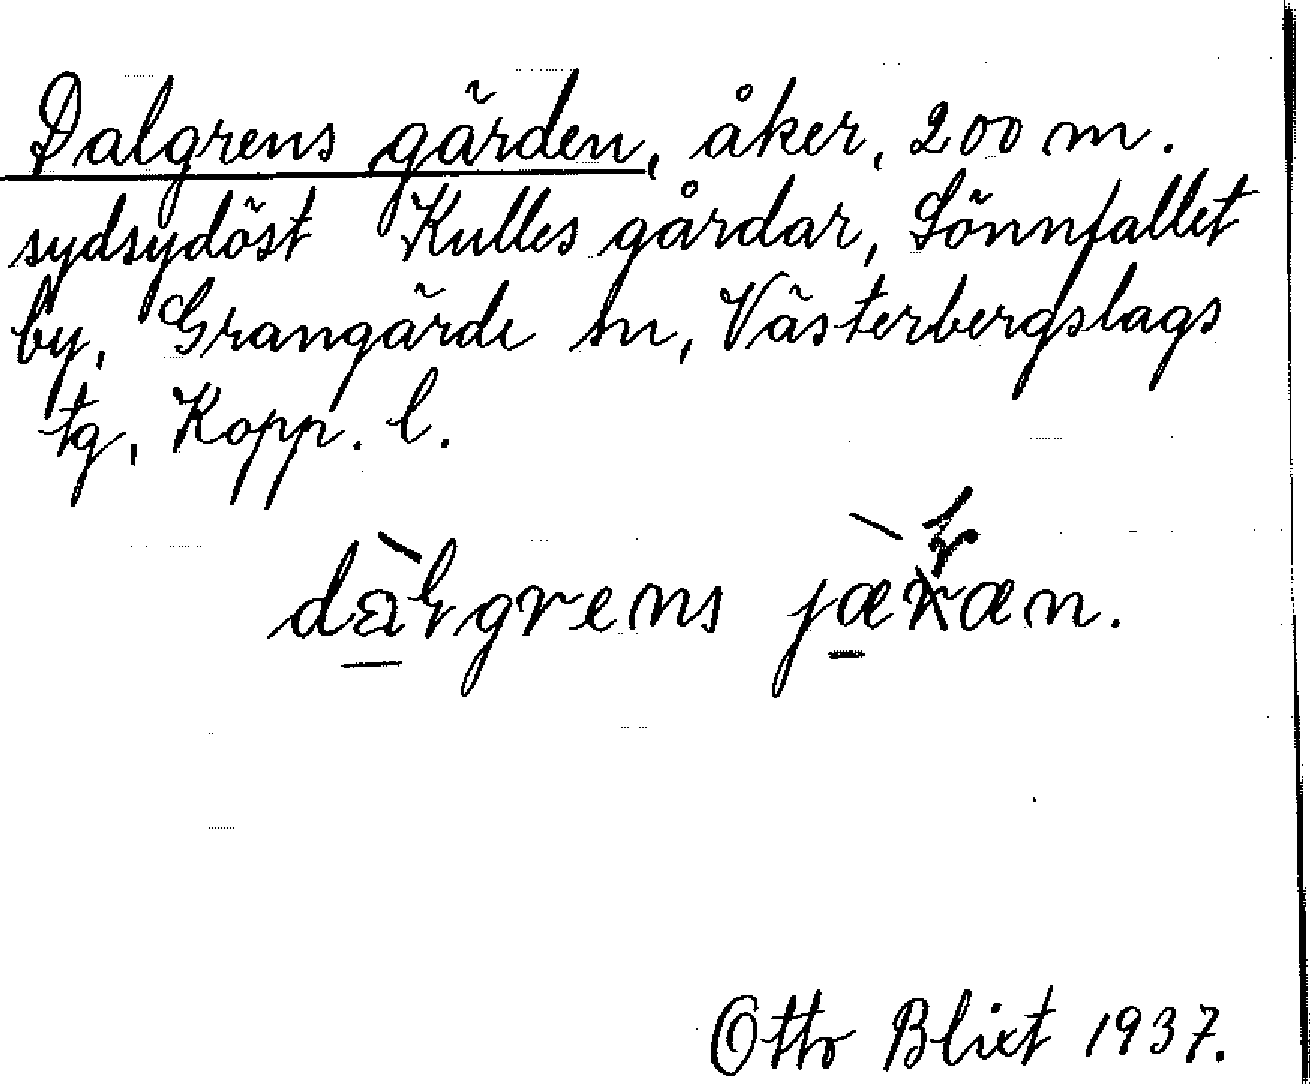 Dalgrens gärden, åker, 200 m.
sydsydöst Kulles gårdar, Sönnfallet
by, Grangärde sn, Västerbergslags
tg, Kopp. l.
Otto Blixt 1937.